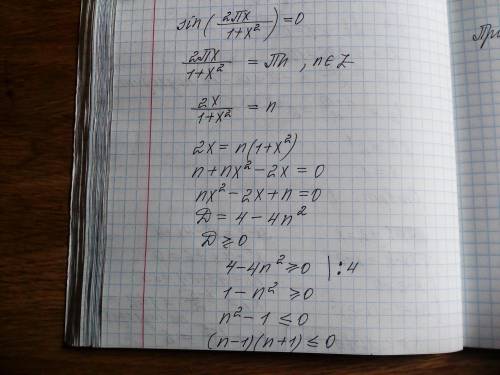 sin(2πx/(1+x²))=0
2πx/(1+x²) = πn, n∈Z
2x/(1+x²) = n
2x = n(1+x²)
n+nx²-2x = 0
nx²-2x+n=0
D = 4-4n²
D ≥ 0
4-4n² ≥ 0 | :4
1-n² ≥ 0
n²-1 ≤ 0
(n-1)(n+1) ≤ 0
При